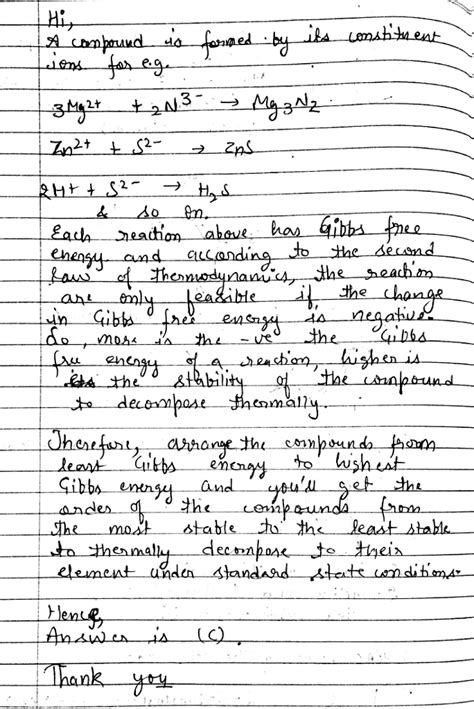 Hi,
A compound is formed by its constituent
ions for e.g.
3Mg2+ + 2N3- → Mg3N2
Zn2+ + S2- → ZnS
2H+ + S2- → H2S
& so on.
Each reaction above has Gibbs free
energy and according to the second
law of thermodynamics, the reaction
are only feasible if the change
in Gibbs free energy is negative.
So, more is the -ve the Gibbs
free energy of a reaction, higher is
the stability of the compound
to decompose thermally.
Therefore, arrange the compounds from
least Gibbs energy to highest
Gibbs energy and you'll get the
order of the compounds from
the most stable to the least stable
to thermally decompose to their
element under standard state conditions.
Hence,
Answer is (C).
Thank you